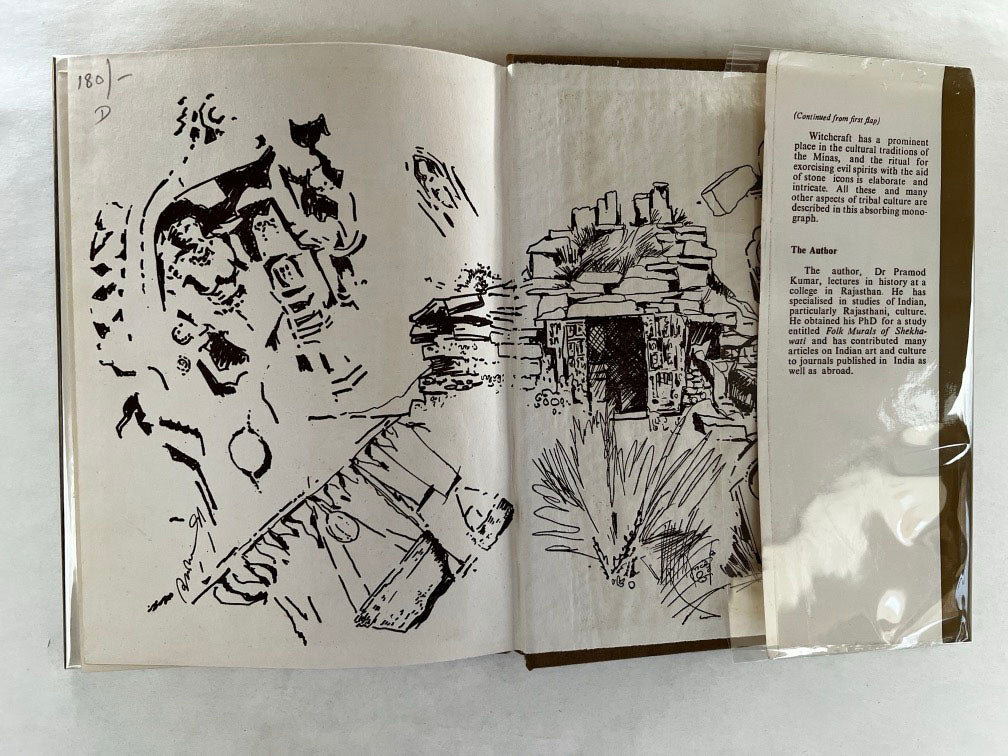 180/-
D
(Continued from first flap)
Witchcraft has a prominent
place in the cultural traditions of
the Minas, and the ritual for
exorcising evil spirits with the aid
of stone icons is elaborate and
intricate. All these and many
other aspects of tribal culture are
described in this absorbing mono-
graph.
The Author
The author, Dr Pramod
Kumar, lectures in history at a
college in Rajasthan. He has
specialised in studies of Indian,
particularly Rajasthani, culture.
He obtained his PhD for a study
entitled Folk Murals of Shekha-
wati and has contributed many
articles on Indian art and culture
to journals published in India as
well as abroad.